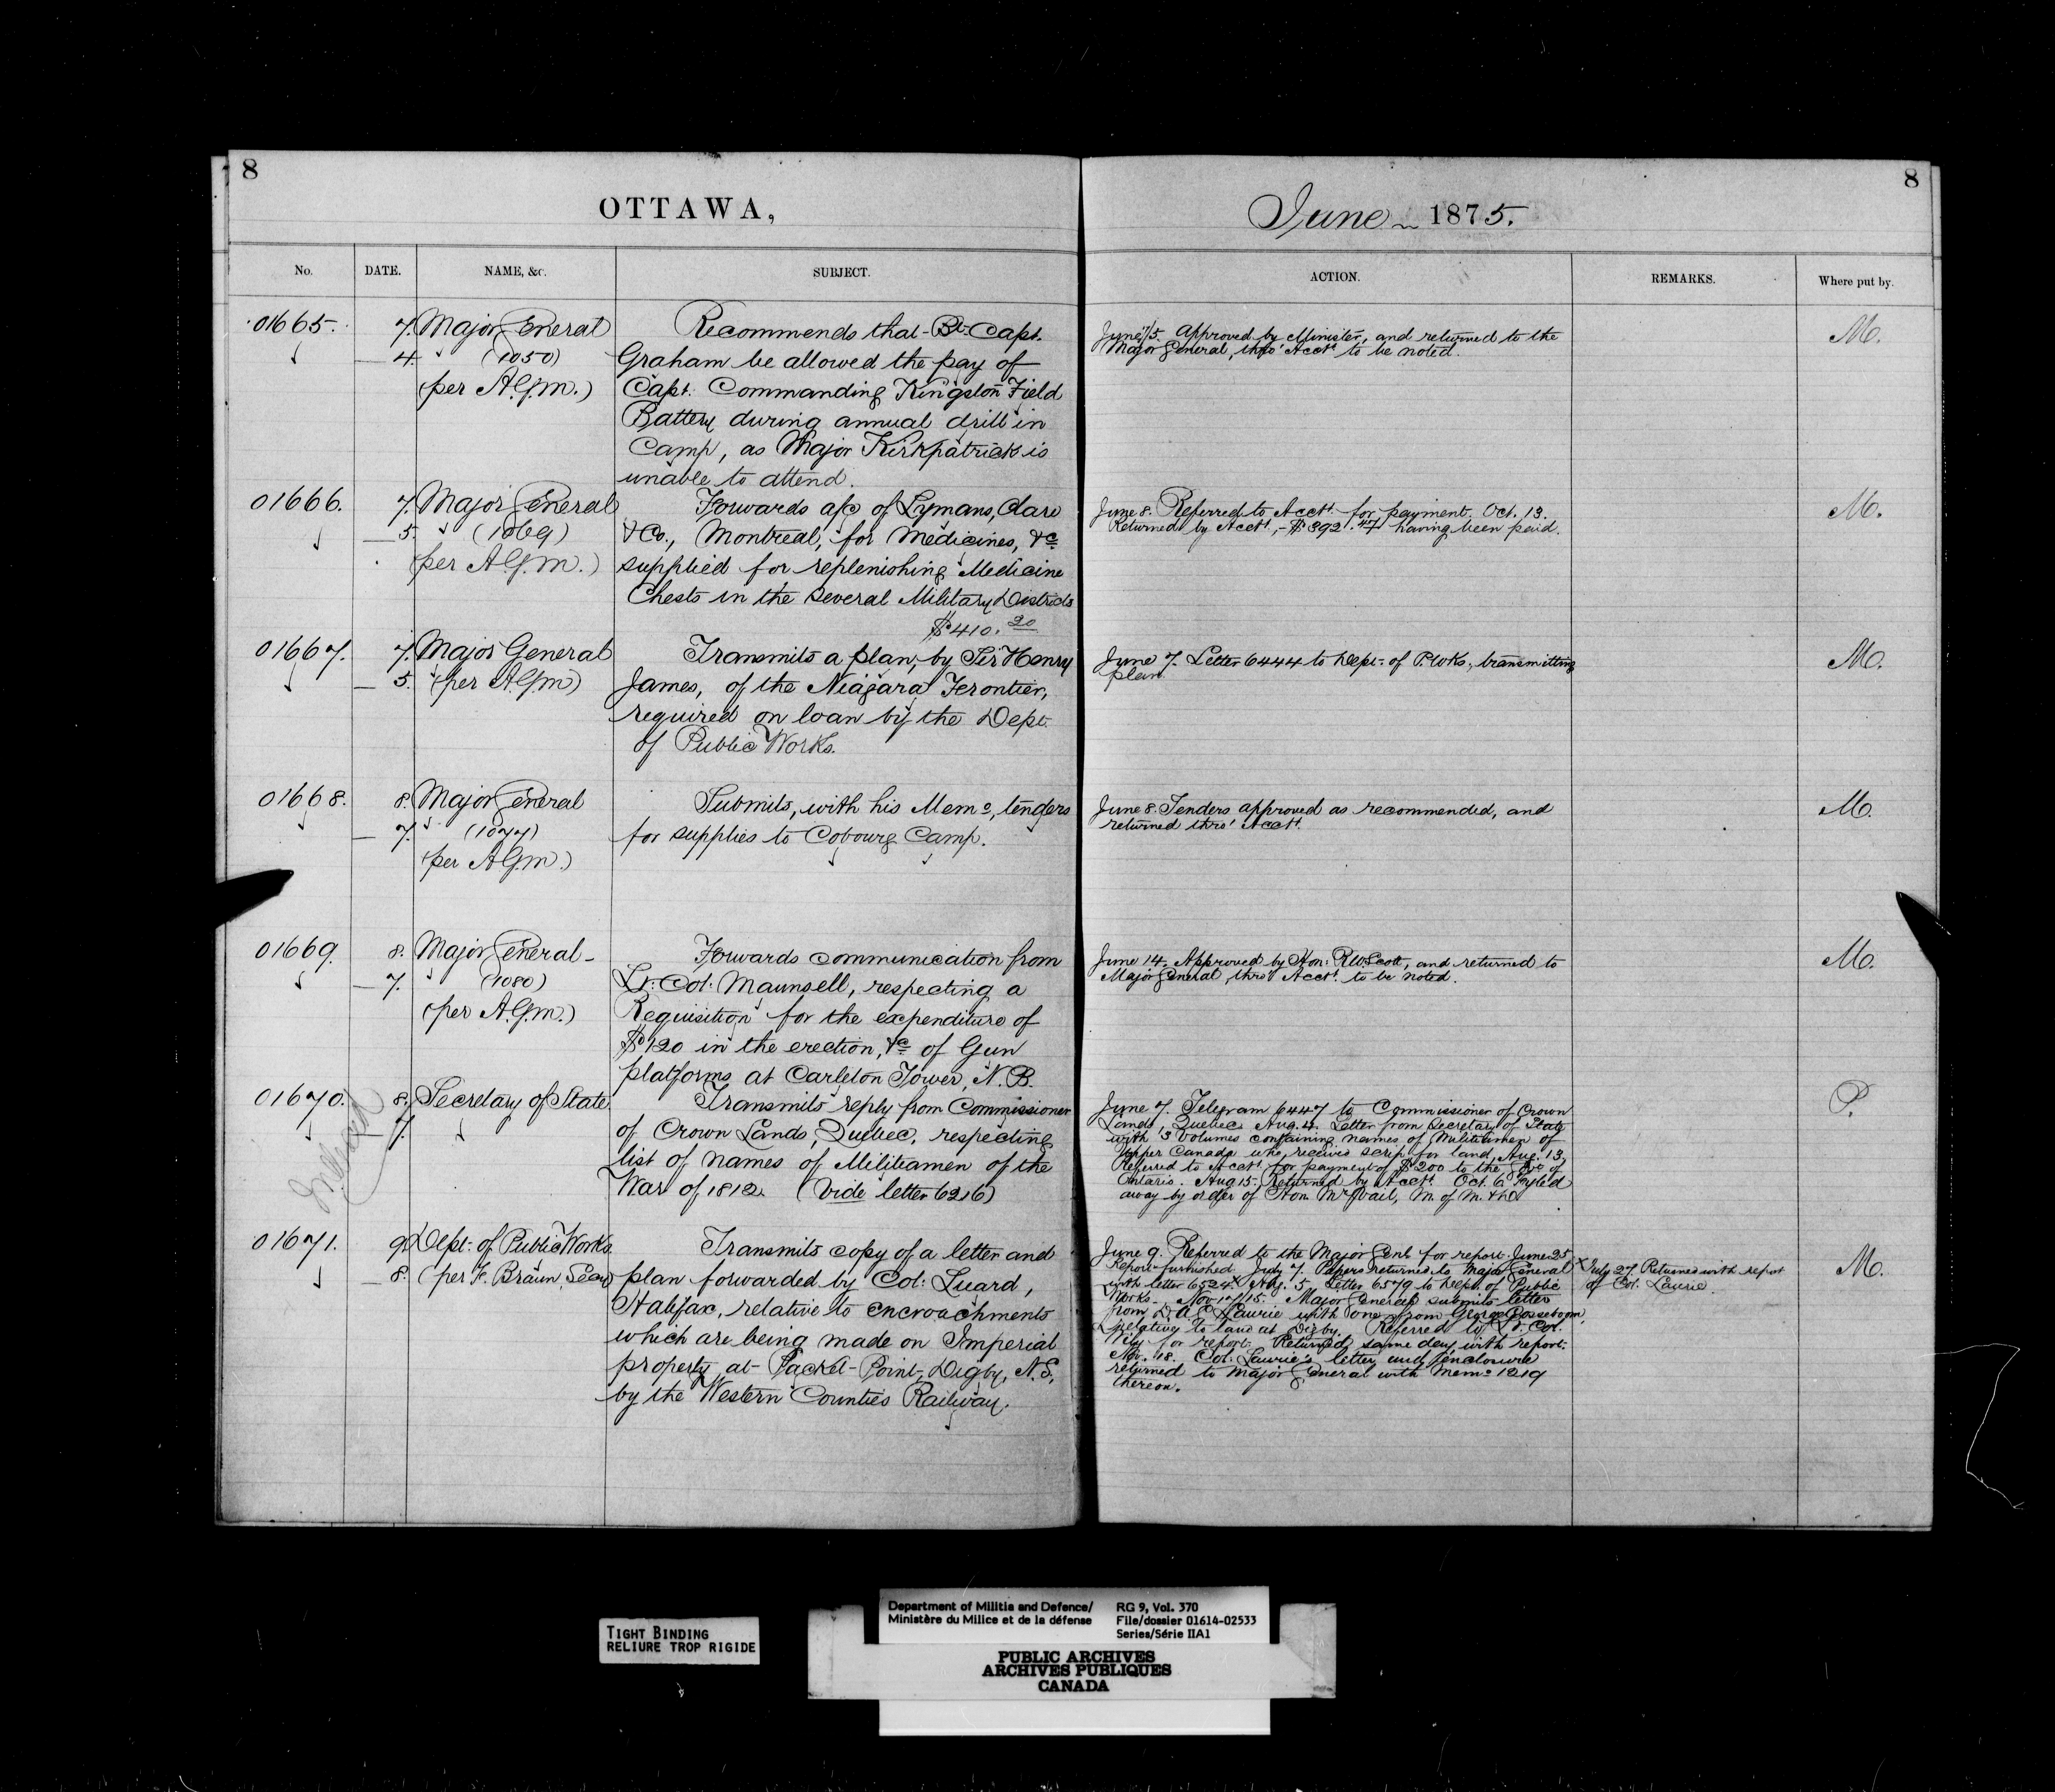 8
OTTAWA,
No. DATE. NAME, &c. SUBJECT.
01665. 7. Major General Recommends that Bt. Capt.
4. " (1050) Graham be allowed the pay of
(per A.G.M.) Capt. Commanding Kingston Field
Battery during annual drill in
Camp, as Major Kirkpatrick is
unable to attend.
01666. 7. Major General Forwards a/c of Lymans, Clare
5. " (1069) & Co., Montreal, for Medicines, &c
(per A.G.M.) supplied for replenishing Medicine
Chests in the several Military Districts
$410.20
01667. 7. Major General Transmits a plan, by Sir Henry
5. (per A.G.M) James, of the Niagara Frontier,
required on loan by the Dept.
of Public Works.
01668. 8. Major General Submits, with his Memo, tenders
7. " (1077) for supplies to Cobourg Camp.
(per A.G.M.)
01669. 8. Major General Forwards communication from
7. " (1080) Lt. Col. Maunsell, respecting a
(per A.G.M.) Requisition for the expenditure of
$120 in the erection, &c of Gun
platforms at Carleton Tower, N.B.
01670. 8. Secretary of State. Transmits reply from Commissioner
7. of Crown Lands, Quebec, respecting
list of names of Militiamen of the
War of 1812. (Vide letter 6216)
01671. 9. Dept. of Public Works. Transmits copy of a letter and
8. (per F. Braun, Secy) plan forwarded by Col. Luard,
Halifax, relative to encroachments
which are being made on Imperial
property at Packet Point, Digby, N.S,
by the Western Counties Railway.
8
June 1875.
ACTION. REMARKS. Where put by.
approved by Minister, and returned to the M.
Major General, thro' Acct. to be noted.
June 8. Referred to Acct. for payment. Oct. 13. M.
Returned by Acct, - $392.47 having been paid.
June 7. Letter 6444 to Dept. of P. Wks, transmitting M.
plan.
June 8. Tenders approved as recommended, and M.
returned thro' Acct.
June 14. Approved by Hon. R.W. Scott, and returned to M.
Major General, thro' Acct. to be noted.
June 7. Telegram 6447 to Commissioner of Crown P.
Lands, Quebec. Aug. 4. Letter from Secretary of State
with 3 Volumes containing names of Militiamen of
Upper Canada who received scrip for land, Aug. 13,
Referred to Acct. for payment of $200 to the of
Ontario. Aug 15. Returned by Acct. Oct. 6
away by order of Hon. Mr Vail, M. of M. & D
June 9. Referred to the Major Genl. for report. June 25 M.
Report furnished. July 7. Papers returned to Major General x July 27. Returned with report
with letter 6524 x Aug. 5. Letter 6579 to Dept. of Public of Col. Laurie.
Works. Major General submits letter
from Laurie with one from George
relative to land at Digby. Referred to Lt. Col.
Wily for report. Returned same day with report.
Nov. 18. Col. Laurie's letter and enclosure
returned to Major General with Memo 1219
thereon.
TIGHT BINDING
RELIURE TROP RIGIDE
Department of Militia and Defence/ RG 9, Vol. 370
Ministère du Milice et de la défense File/dossier 01614-02533
Series/Série IIA1
PUBLIC ARCHIVES
ARCHIVES PUBLIQUES
CANADA